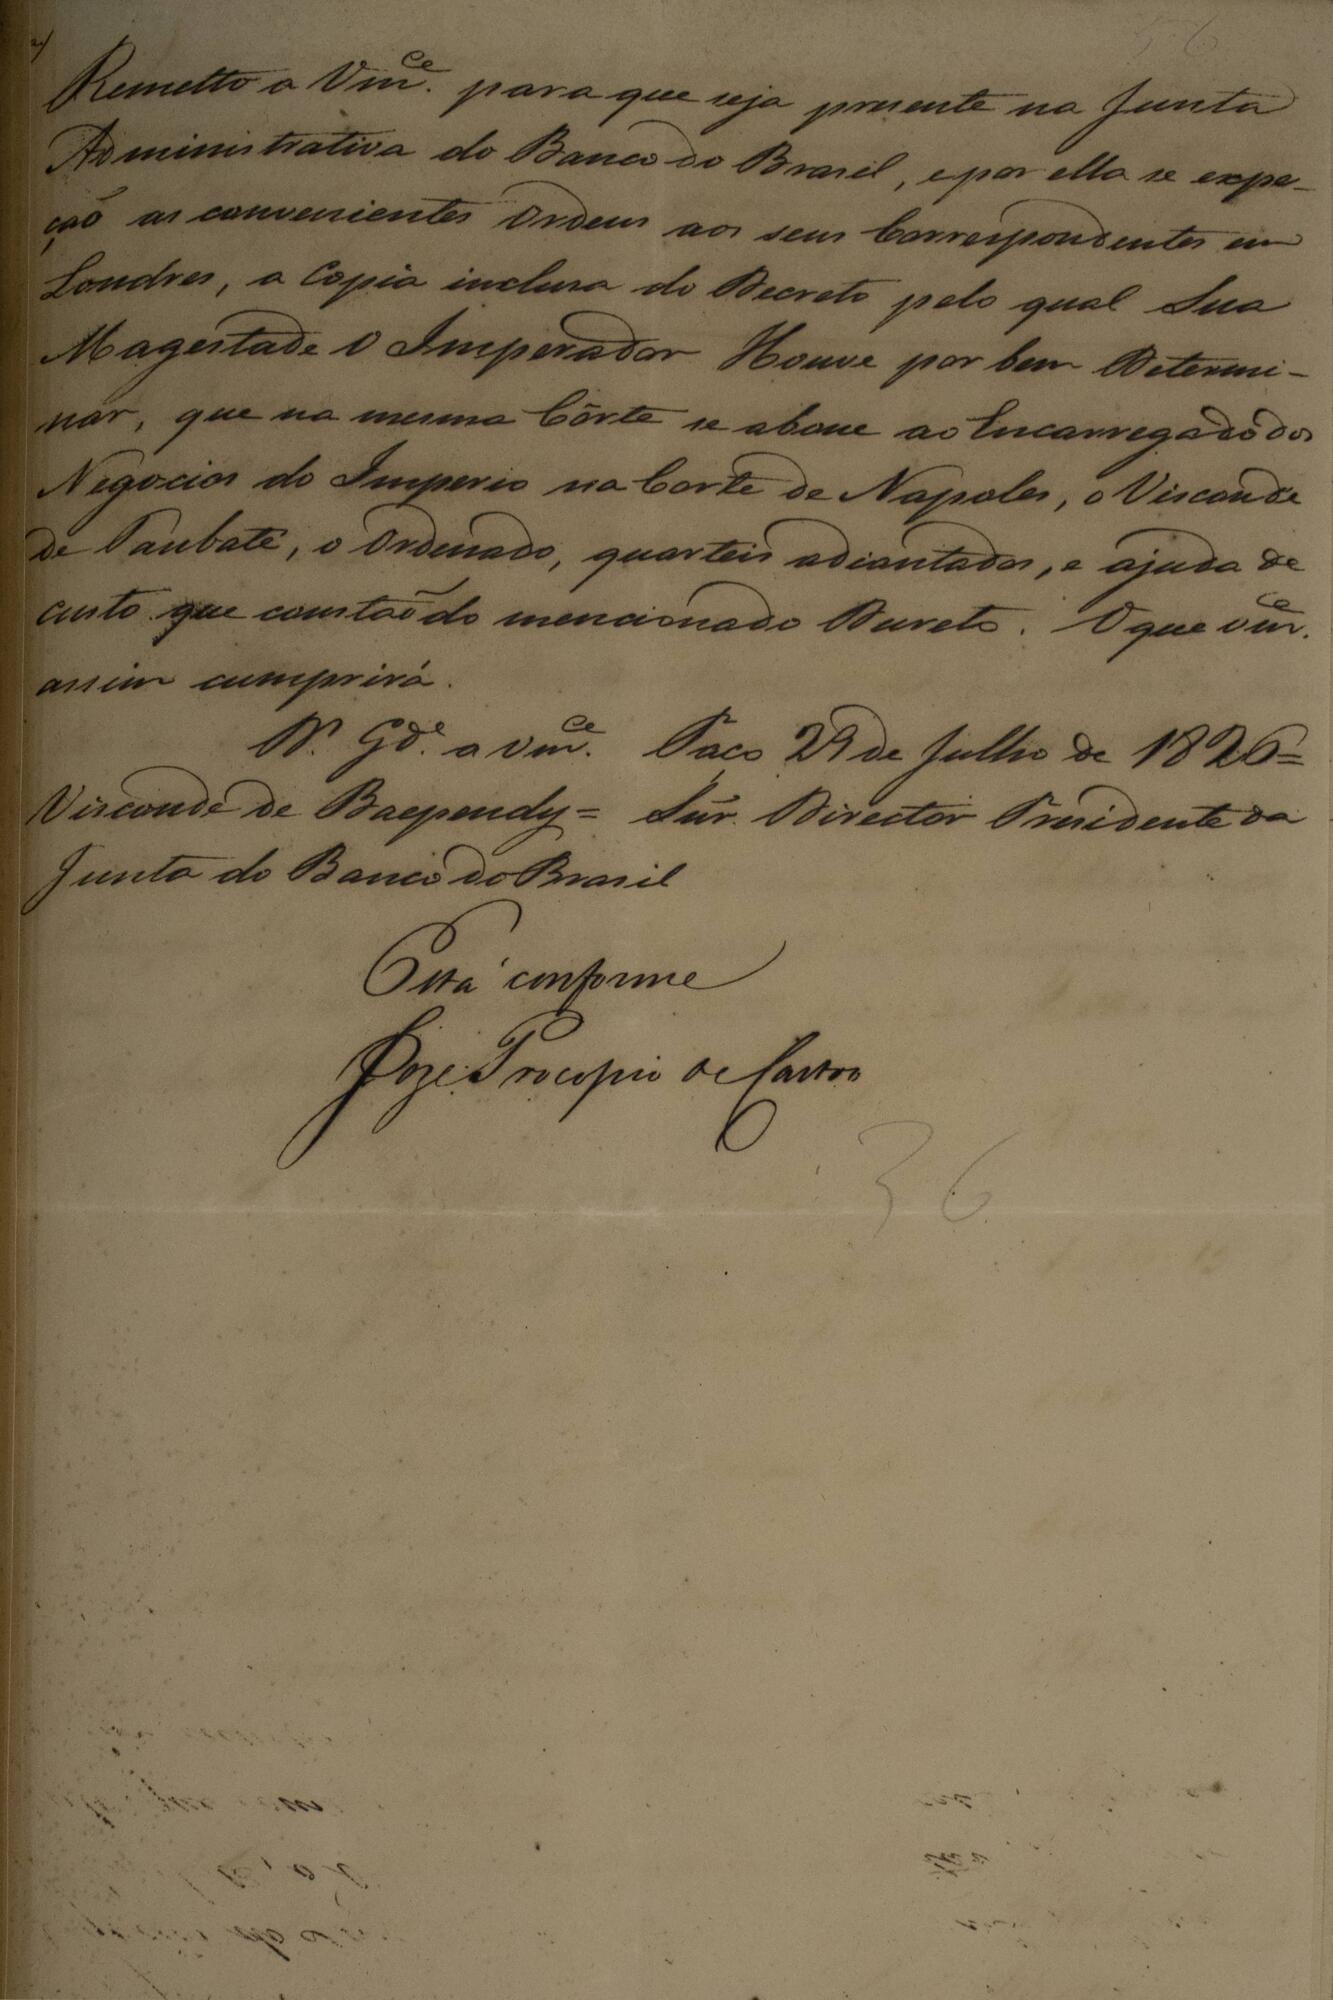 56
Remetto a Vm.ce para que seja presente na Junta
Administrativa do Banco do Brasil, e por ella se expe-
ção as convenientes Ordens aos seus Correspondentes em
Londres, a Copia inclusa do Decreto pelo qual Sua
Magestade O Imperador Houve por bem Determi-
nar, que na mesma Côrte se abone ao Encarregado dos
Negocios do Imperio na Corte de Napoles, o Visconde
de Taubaté, o Ordenado, quarteis adiantados, e ajuda de
custo que constão do mencionado Decreto. O que Vm.ce
assim cumprirá.
D.s G.de a Vm.ce Paço 29 de Julho de 1826=
Visconde de Baependy= Snr. Director Presidente da
Junta do Banco do Brasil
Está conforme
Joze Procopio de Castro
36